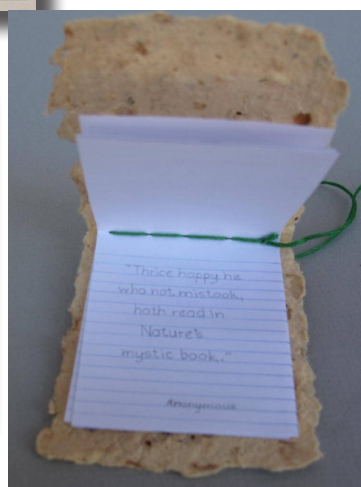 "Thrice happy he
who not mistook,
hath read in
Nature's
mystic book."
Anonymous